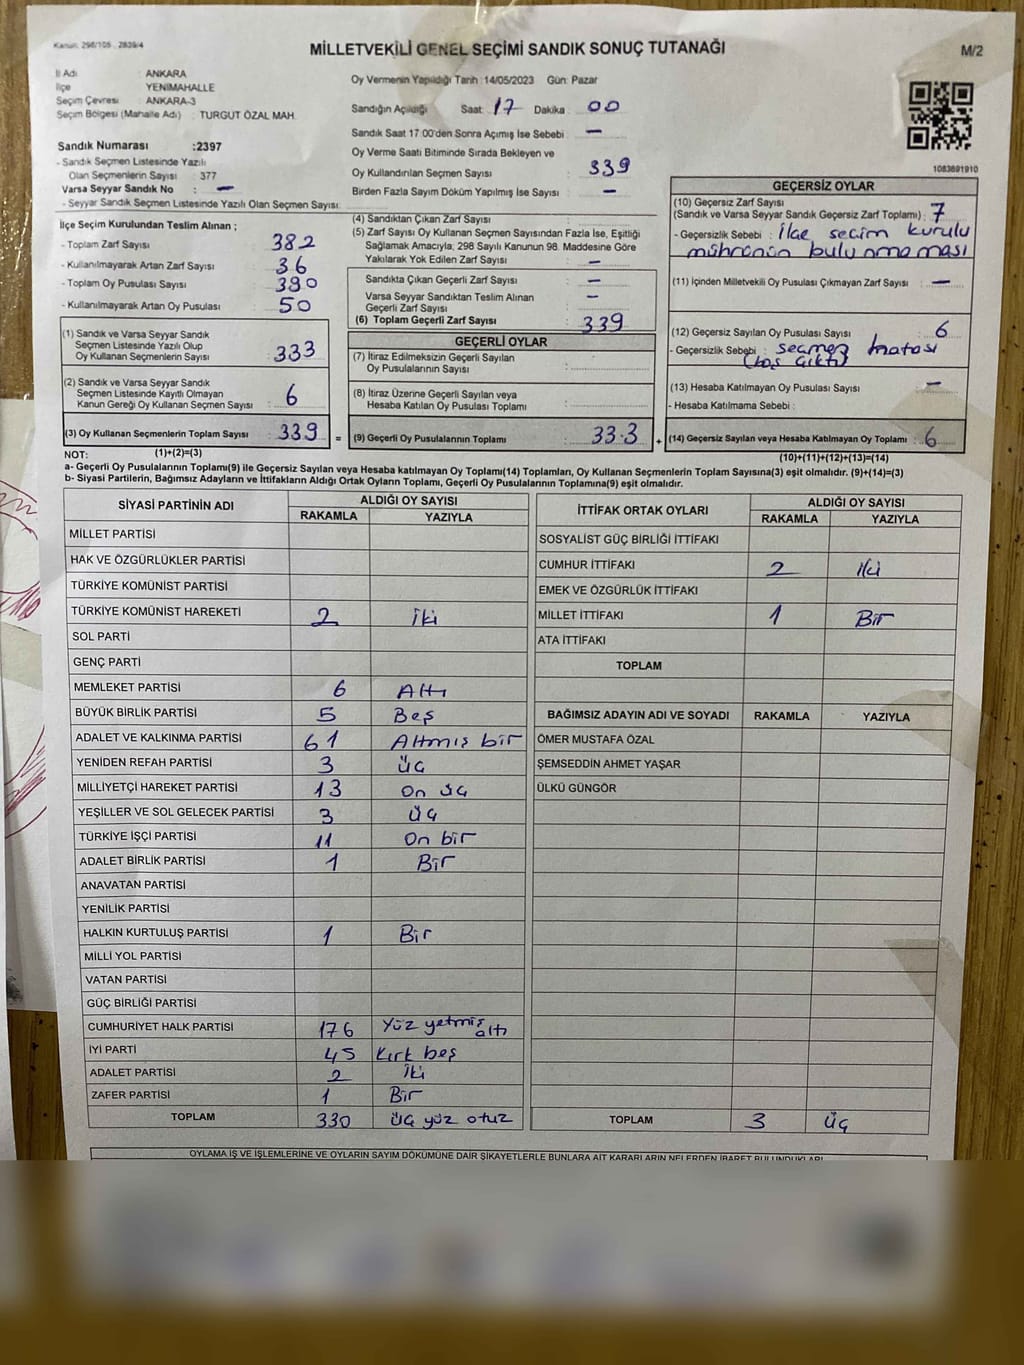 Kanun: 298/105 , 2839/4
MİLLETVEKİLİ GENEL SEÇİMİ SANDIK SONUÇ TUTANAĞI
M/2
İl Adı : ANKARA
İlçe : YENİMAHALLE
Seçim Çevresi : ANKARA-3
Seçim Bölgesi (Mahalle Adı) : TURGUT ÖZAL MAH.
Oy Vermenin Yapıldığı Tarih :14/05/2023 Gün: Pazar
Sandığın Açıldığı Saat : 17 Dakika : 00
Sandık Saat 17.00'den Sonra Açımış İse Sebebi : –
Oy Verme Saati Bitiminde Sırada Bekleyen ve
Oy Kullandırılan Seçmen Sayısı : 339
Birden Fazla Sayım Döküm Yapılmış İse Sayısı : –
1083691910
Sandık Numarası :2397
- Sandık Seçmen Listesinde Yazılı
Olan Seçmenlerin Sayısı : 377
Varsa Seyyar Sandık No : –
- Seyyar Sandık Seçmen Listesinde Yazılı Olan Seçmen Sayısı:
İlçe Seçim Kurulundan Teslim Alınan ;
- Toplam Zarf Sayısı : 382
- Kullanılmayarak Artan Zarf Sayısı : 36
- Toplam Oy Pusulası Sayısı : 390
- Kullanılmayarak Artan Oy Pusulası : 50
(1) Sandık ve Varsa Seyyar Sandık
Seçmen Listesinde Yazılı Olup
Oy Kullanan Seçmenlerin Sayısı : 333
(2) Sandık ve Varsa Seyyar Sandık
Seçmen Listesinde Kayıtlı Olmayan
Kanun Gereği Oy Kullanan Seçmen Sayısı : 6
(3) Oy Kullanan Seçmenlerin Toplam Sayısı : 339 =
(4) Sandıktan Çıkan Zarf Sayısı :
(5) Zarf Sayısı Oy Kullanan Seçmen Sayısından Fazla İse, Eşitliği
Sağlamak Amacıyla, 298 Sayılı Kanunun 98. Maddesine Göre
Yakılarak Yok Edilen Zarf Sayısı : –
Sandıkta Çıkan Geçerli Zarf Sayısı : –
Varsa Seyyar Sandıktan Teslim Alınan
Geçerli Zarf Sayısı : –
(6) Toplam Geçerli Zarf Sayısı : 339
GEÇERLİ OYLAR
(7) İtiraz Edilmeksizin Geçerli Sayılan
Oy Pusulalarının Sayısı :
(8) İtiraz Üzerine Geçerli Sayılan veya
Hesaba Katılan Oy Pusulası Toplamı :
(9) Geçerli Oy Pusulalarının Toplamı : 333 +
GEÇERSİZ OYLAR
(10) Geçersiz Zarf Sayısı
(Sandık ve Varsa Seyyar Sandık Geçersiz Zarf Toplamı) : 7
- Geçersizlik Sebebi : İlçe seçim kurulu
mührünün bulunmaması
(11) İçinden Milletvekili Oy Pusulası Çıkmayan Zarf Sayısı : –
(12) Geçersiz Sayılan Oy Pusulası Sayısı : 6
- Geçersizlik Sebebi : seçmen hatası
(boş çıktı)
(13) Hesaba Katılmayan Oy Pusulası Sayısı : –
- Hesaba Katılmama Sebebi :
(14) Geçersiz Sayılan veya Hesaba Katılmayan Oy Toplamı : 6
NOT: (1)+(2)=(3)
(10)+(11)+(12)+(13)=(14)
a- Geçerli Oy Pusulalarının Toplamı(9) ile Geçersiz Sayılan veya Hesaba katılmayan Oy Toplamı(14) Toplamları, Oy Kullanan Seçmenlerin Toplam Sayısına(3) eşit olmalıdır. (9)+(14)=(3)
b- Siyasi Partilerin, Bağımsız Adayların ve İttifakların Aldığı Ortak Oyların Toplamı, Geçerli Oy Pusulalarının Toplamına(9) eşit olmalıdır.
SİYASİ PARTİNİN ADI ALDIĞI OY SAYISI
RAKAMLA YAZIYLA
MİLLET PARTİSİ
HAK VE ÖZGÜRLÜKLER PARTİSİ
TÜRKİYE KOMÜNİST PARTİSİ
TÜRKİYE KOMÜNİST HAREKETİ 2 İki
SOL PARTİ
GENÇ PARTİ
MEMLEKET PARTİSİ 6 Altı
BÜYÜK BİRLİK PARTİSİ 5 Beş
ADALET VE KALKINMA PARTİSİ 61 Altmış bir
YENİDEN REFAH PARTİSİ 3 üç
MİLLİYETÇİ HAREKET PARTİSİ 13 On üç
YEŞİLLER VE SOL GELECEK PARTİSİ 3 üç
TÜRKİYE İŞÇİ PARTİSİ 11 On bir
ADALET BİRLİK PARTİSİ 1 Bir
ANAVATAN PARTİSİ
YENİLİK PARTİSİ
HALKIN KURTULUŞ PARTİSİ 1 Bir
MİLLİ YOL PARTİSİ
VATAN PARTİSİ
GÜÇ BİRLİĞİ PARTİSİ
CUMHURİYET HALK PARTİSİ 176 Yüz yetmiş altı
İYİ PARTİ 45 Kırk beş
ADALET PARTİSİ 2 İki
ZAFER PARTİSİ 1 Bir
TOPLAM 330 üç yüz otuz
İTTİFAK ORTAK OYLARI ALDIĞI OY SAYISI
RAKAMLA YAZIYLA
SOSYALİST GÜÇ BİRLİĞİ İTTİFAKI
CUMHUR İTTİFAKI 2 İki
EMEK VE ÖZGÜRLÜK İTTİFAKI
MİLLET İTTİFAKI 1 Bir
ATA İTTİFAKI
TOPLAM
BAĞIMSIZ ADAYIN ADI VE SOYADI RAKAMLA YAZIYLA
ÖMER MUSTAFA ÖZAL
ŞEMSEDDİN AHMET YAŞAR
ÜLKÜ GÜNGÖR
TOPLAM 3 üç
OYLAMA İŞ VE İŞLEMLERİNE VE OYLARIN SAYIM DÖKÜMÜNE DAİR ŞİKAYETLERLE BUNLARA AİT KARARLARIN NELERDEN İBARET BULUNDUKLARI